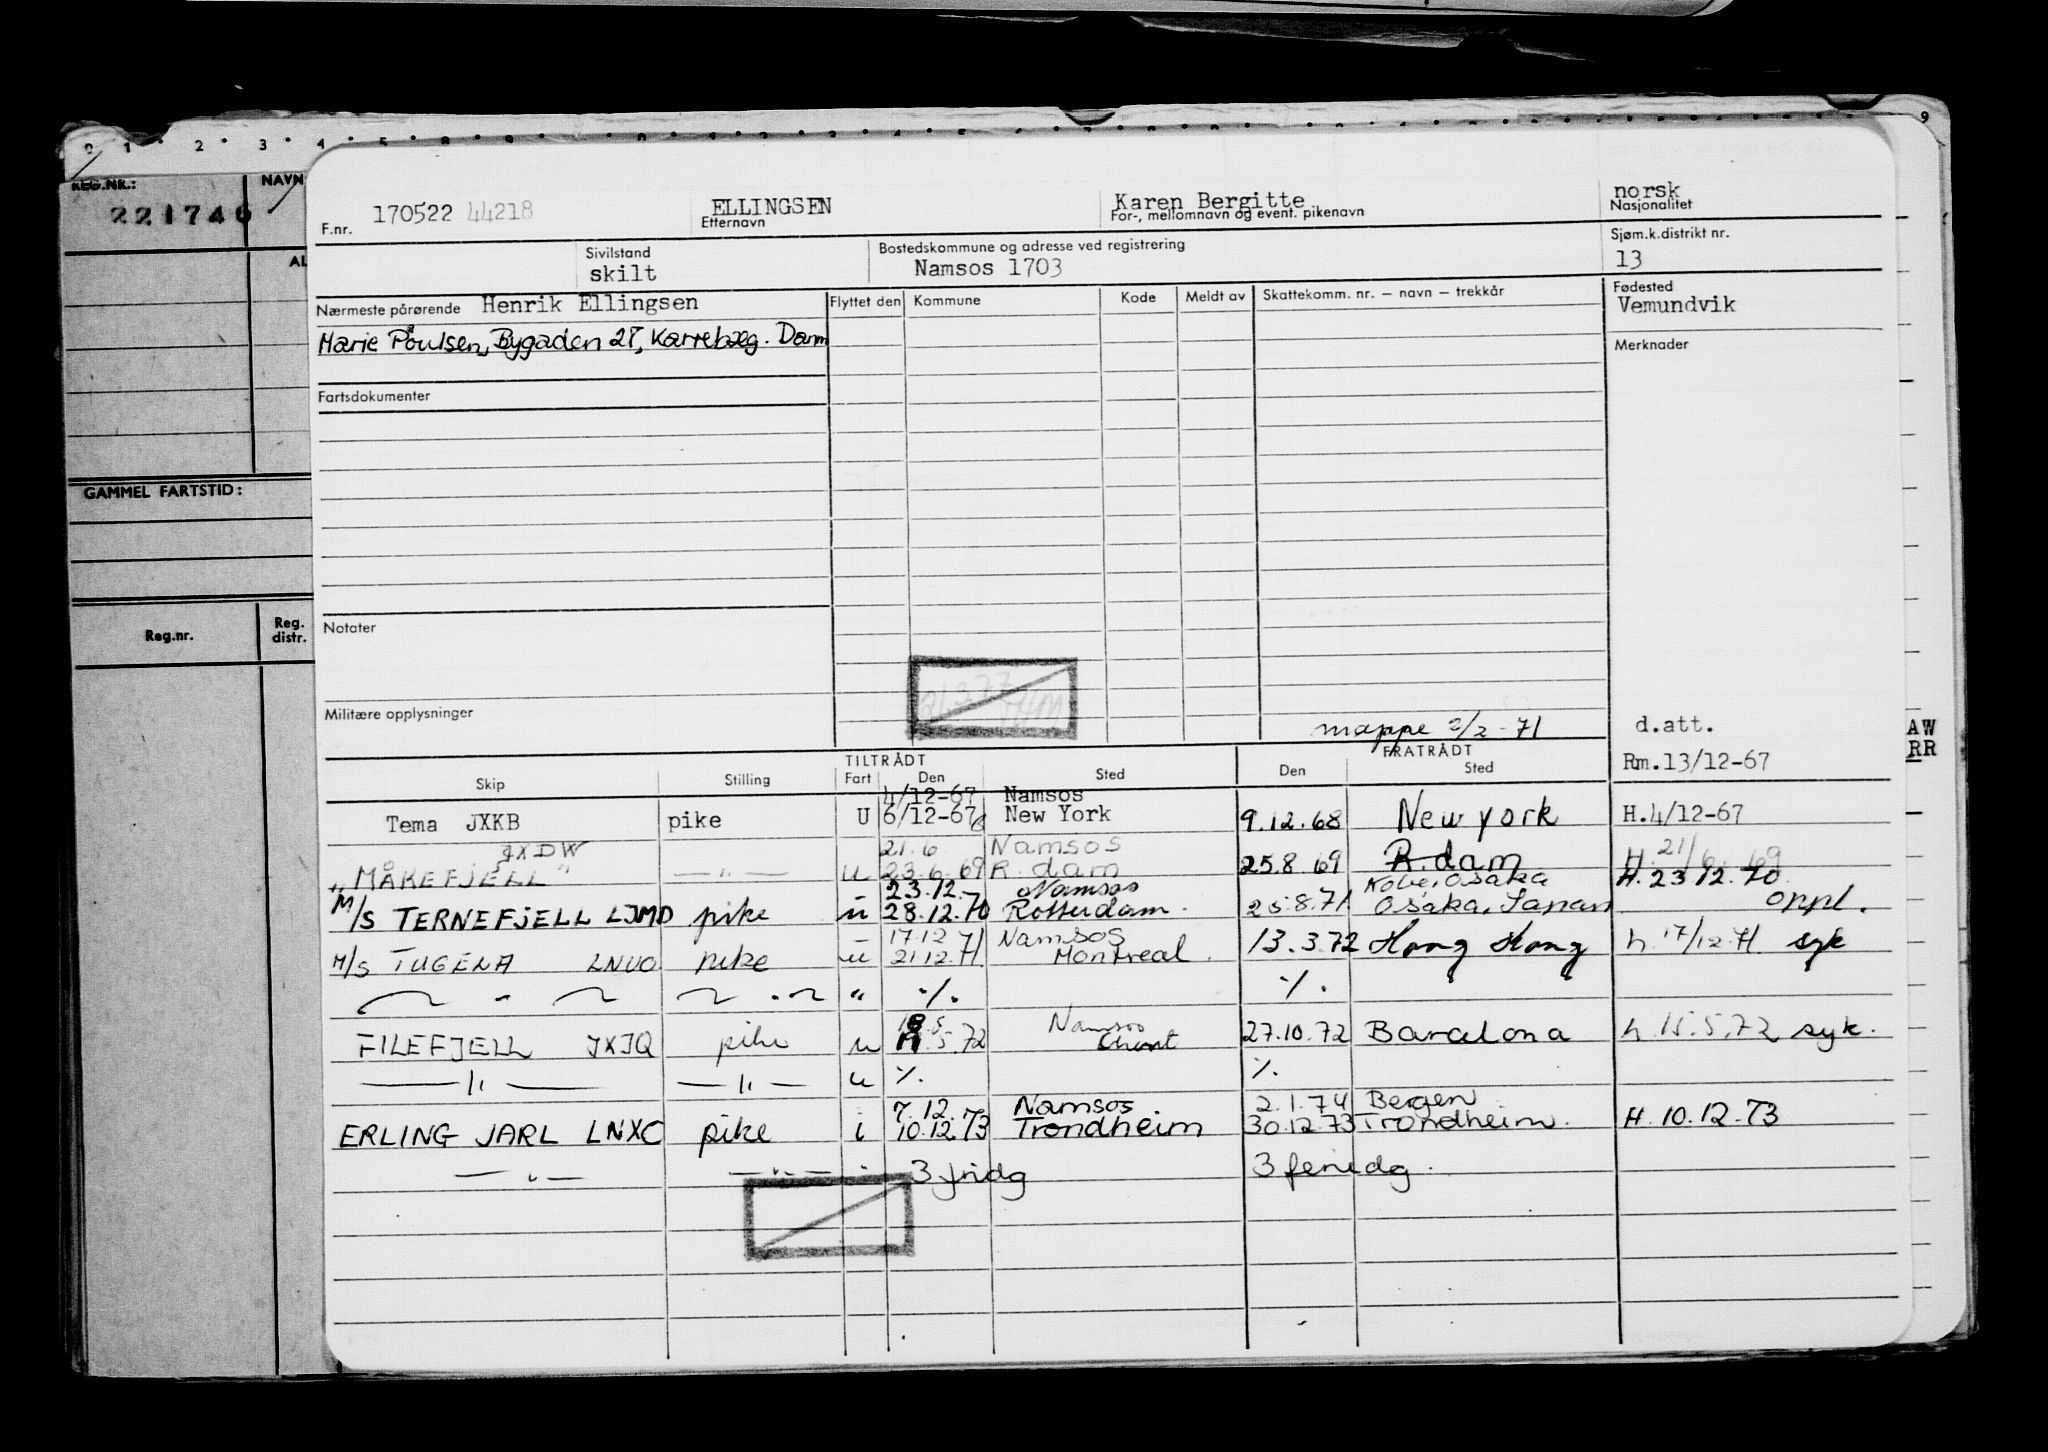 0 1 2 3 4 5 8 9
9
REG.NR.:
NAVN
221740
AL
GAMMEL FARTSTID:
Reg.nr.
Reg. distr.
AW
RR
F.nr. 170522 44218
ELLINGSEN
Etternavn
Karen Bergitte
For-, mellomnavn og event. pikenavn
norsk
Nasjonalitet
Sivilstand
skilt
Bostedskommune og adresse ved registrering
Namsos 1703
Sjøm.k.distrikt nr.
13
Nærmeste pårørende Henrik Ellingsen
Marie Poulsen, Bygaden 27, Karrebæg. Danm
Flyttet den Kommune Kode Meldt av Skattekomm. nr. – navn – trekkår
Fødested
Vemundvik
Merknader
Fartsdokumenter
Notater
Militære opplysninger
mappe 2/2-71
d.att.
Rm.13/12-67
TILTRÅDT FRATRÅDT
Skip Stilling Fart Den Sted Den Sted
4/12-67 Namsos
Tema JXKB pike U 6/12-67 New York 9.12.68 New York H.4/12-67
JXDW 21.6 Namsos
"MÅKEFJELL" —"— u 23.6.69 R.dam 25.8.69 R.dam H.21/6.69
23.12. Namsos Kobe, Osaka H.23.12.70
M/S TERNEFJELL LJMD pike u 28.12.70 Rotterdam. 25.8.71 Osaka, Japan oppl.
17.12.71 Namsos
M/S TUGELA LNUO pike u 21.12.71 Montreal. 13.3.72 Hong Kong h.17/12.71 syk
— " — — " — " ./. ./.
18.5. Namsos
FILEFJELL JXJQ pike u 5.72 Ghent 27.10.72 Barcelona h.15.5.72 syk.
—"— —"— u ./. ./.
7.12. Namsos 2.1.74 Bergen
ERLING JARL LNXC pike i 10.12.73 Trondheim 30.12.73 Trondheim. H.10.12.73
—"— —"— 3 fridg 3 feriedg.